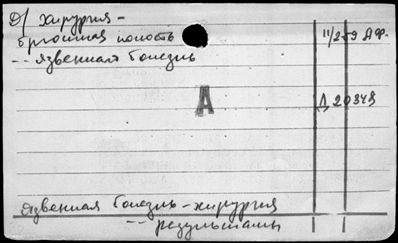 д/ хирургия -
брюшная полость
-- язвенная болезнь
11/259 АФ.
А
Д 20348
язвенная болезнь - хирургия
-- результаты